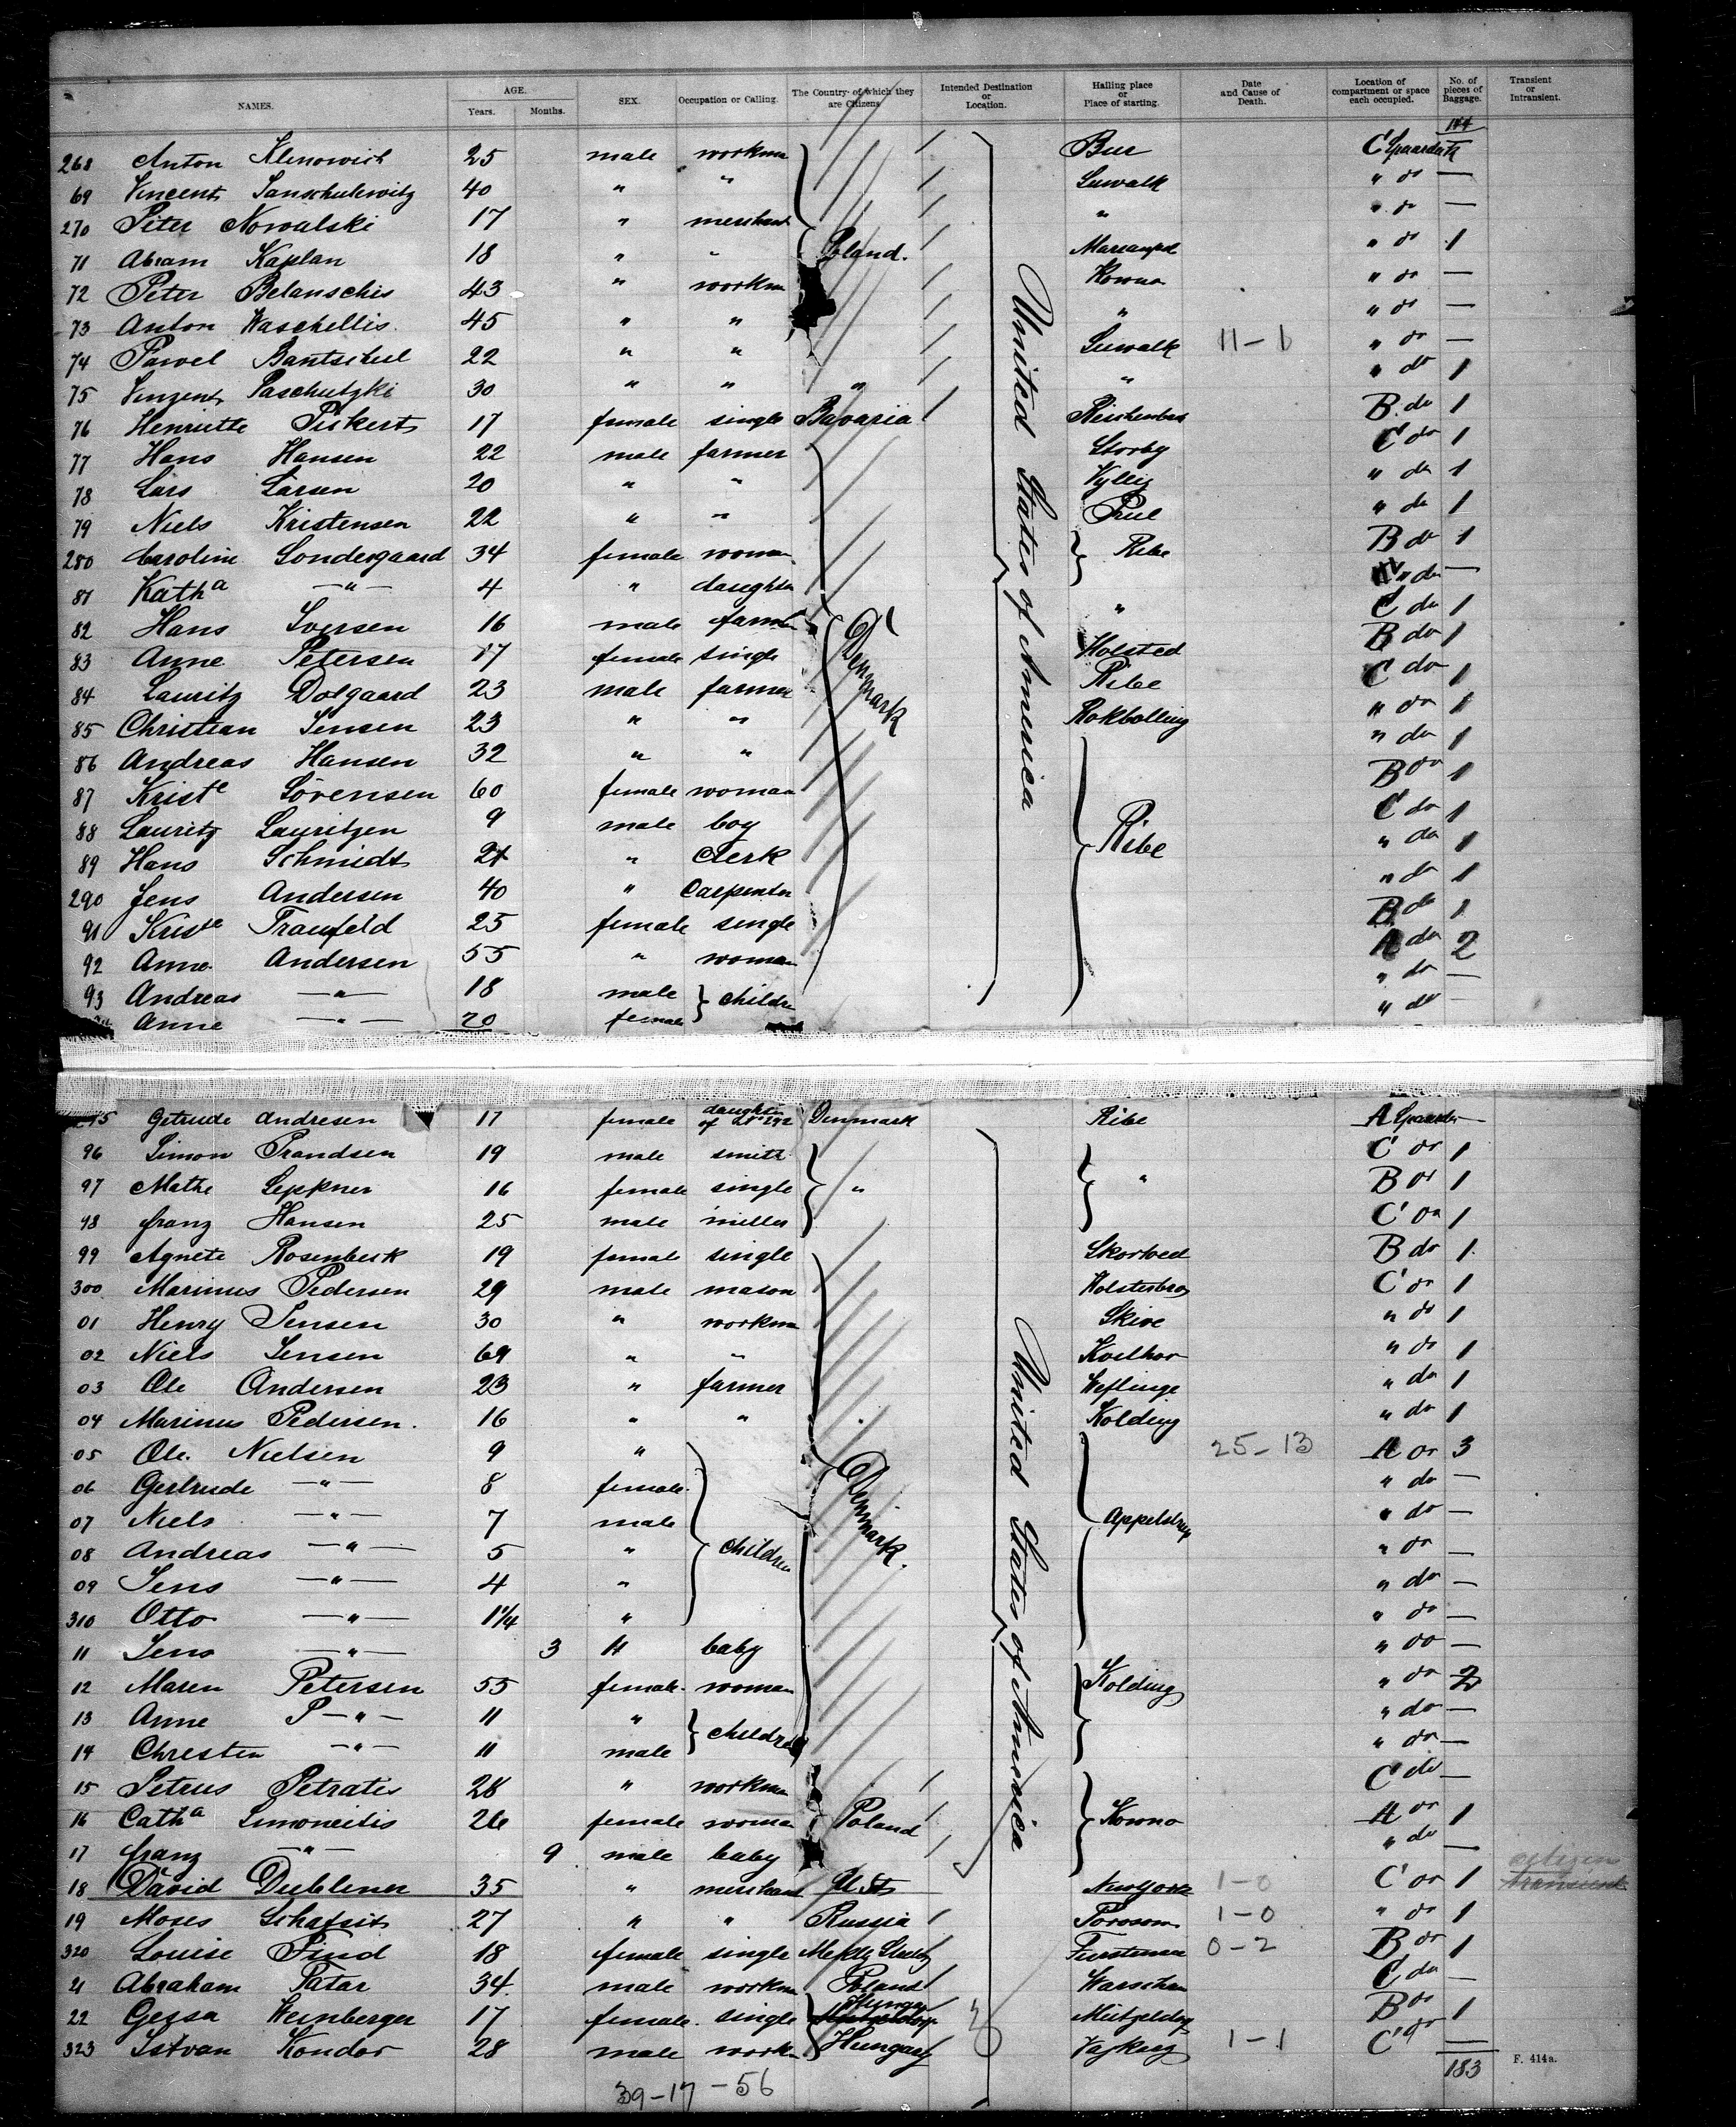 NAMES. AGE. Years. Months. SEX. Occupation or Calling. The Country of which they are Citizens. Intended Destination or Location. Hailing place or Place of starting. Date and Cause of Death. Location of compartment or space each occupied. No. of pieces of Baggage. Transient or Intransient.
144
268 Anton Klenowich 25 male workm Bur C Spaarndam
69 Vincent 40 " " Suwalk " do —
270 Piter Nowalski 17 " merchant " " do —
71 Abram Kaplan 18 " " Poland. " do 1
72 Peter Belanschis 43 " workm Kowno " do —
73 Anton Waschellis. 45 " " " " do —
74 Pawel Bantschul 22 " " Suwalk 11-1 " do —
75 Vinzent Paschutzki 30 " " " " " do 1
76 Henriette Piskert 17 female single Bavaria B. do 1
77 Hans Hansen 22 male farmer Storby C do 1
78 Lars Larsen 20 " " " do 1
79 Niels Kristensen 22 " " " do 1
280 Caroline Sondergaard 34 female woman Ribe B do 1
81 Katha —"— 4 " daughter " do —
82 Hans Iversen 16 male farmer " C do 1
83 Anne Petersen 17 female single Holsted B do 1
84 Lauritz Dolgaard 23 male farmer Denmark Ribe C do 1
85 Christian Jensen 23 " " Rokbolling " do 1
86 Andreas Hansen 32 " " " do 1
87 Kriste Sörensen 60 female woman B do 1
88 Lauritz Lauritzen 9 male boy C do 1
89 Hans Schmidt 21 " Clerk Ribe " do 1
290 Jens Andersen 40 " Carpenter " do 1
91 Kriste Traufeld 25 female single B do 1
92 Anne Andersen 55 " woman A do 2
93 Andreas —"— 18 male children " do —
Anne —"— 20 female " do —
United States of America
95 Getrude Andresen 17 female daughter of No 292 Denmark Ribe A Spaarndam —
96 Simon Frandsen 19 male smith C do 1
97 Mathe Lepkner 16 female single " " B do 1
98 franz Hansen 25 male miller C do 1
99 Agnete Rosenbeck 19 female single B do 1.
300 Marinus Pedersen 29 male mason Holstebro C do 1
01 Henry Jensen 30 " workm Skive " do 1
02 Niels Jensen 69 " " " do 1
03 Ole Andersen 23 " farmer Weflinge " do 1
04 Marinus Pedersen. 16 " " Kolding " do 1
05 Ole. Nielsen 9 " 25-13 A do 3
06 Gertrude —"— 8 female. Denmark. " do —
07 Niels —"— 7 male Appelstrup " do —
08 Andreas —"— 5 " children " do —
09 Jens —"— 4 " " do —
310 Otto —"— 1¼ " " do —
11 Jens —"— 3 " baby " do —
12 Maren Petersen 55 female. woman Kolding " do 2
13 Anne P—"— 11 " children " do —
14 Christen —"— 11 male " do —
15 Petrus Petratis 28 " workman C do —
16 Catha Simoneitis 26 female woman Poland Kowno A do 1
17 franz —"— 9 male baby " do —
18 David Dubliner 35 " merchant U. Sts New York 1-0 C do 1 citizen transient
19 Moses 27 " " Russia 1-0 " do 1
320 Louise Find 18 female single 0-2 B do 1
21 Abraham Tatar 34. male workm Poland Warschau C do —
22 Gessa Weinberger 17 female. single Hungary B do 1
323 Istvan Kondor 28 male workm Hungary 1-1 C do —
United States of America
183
F. 414a.
39-17-56